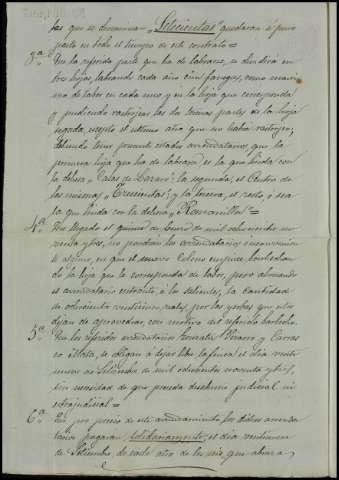 las que se denominan "Seticientas" quedarán á puro
pasto en todo el tiempo de este contrato=
3ª Que la referida parte que ha de labrarse, se dividirá en
tres hojas, labrando cada año cien fanegas, como maxi-
mo de labor en cada una y en la hoja que corresponda
y pudiendo rastrojear las dos terceras partes de la hoja
segada, excepto el ultimo año que no habrá rastrojeo;
debiendo tener presente estos arrendatarios, que la
primera hoja que ha de labrarse es la que linda con
la dehesa "Calas de Lazaro"; la segunda, el Centro de
las mismas "Trescientas"; y la tercera, el resto, ó sea
la que linda con la dehesa "Romanillos"=
4ª Que llegado el quince de Enero de mil ochocientos no-
venta y tres, no pondran los arrendatarios inconveniente
alguno, en que el nuevo Colono empiece
de la hoja que le corresponda de labor, pero abonando
el arrendatario entrante, á los salientes, la cantidad
de ochocientos veinticinco reales, por las yerbas que estos
dejan de aprovechar, con motivo del referido barbecho.
5ª Que los referidos arrendatarios Gonzalez Pizarro y Carras-
co Plata, se obligan á dejar libre la finca el dia veinte
nueve de Setiembre de mil ochocientos noventa y tres,
sin necesidad de que preceda deshaucio judicial ni
extrajudicial=
6ª Que por precio de este arrendamiento los dichos arrenda-
tarios pagarán solidariamente, el dia veintinueve
de Setiembre de cada año de los seis, que abraza